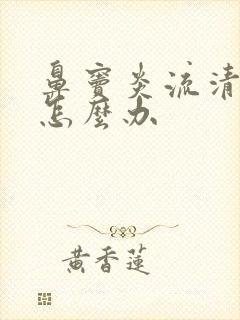 鼻窦炎流清
怎麼办
黄香蓮